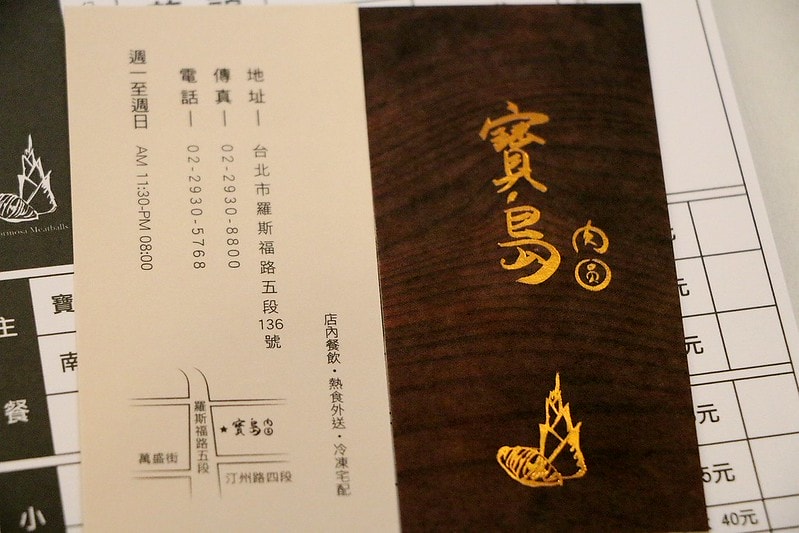 寶島
肉圓
店內餐飲・熱食外送・冷凍宅配
地址— 台北市羅斯福路五段136號
傳真— 02-2930-8800
電話— 02-2930-5768
週一至週日 AM 11:30-PM 08:00
寶島肉圓
羅斯福路五段
萬盛街
汀州路四段
Meatballs
主
餐
寶
南
小
元
元
元
5元
40元